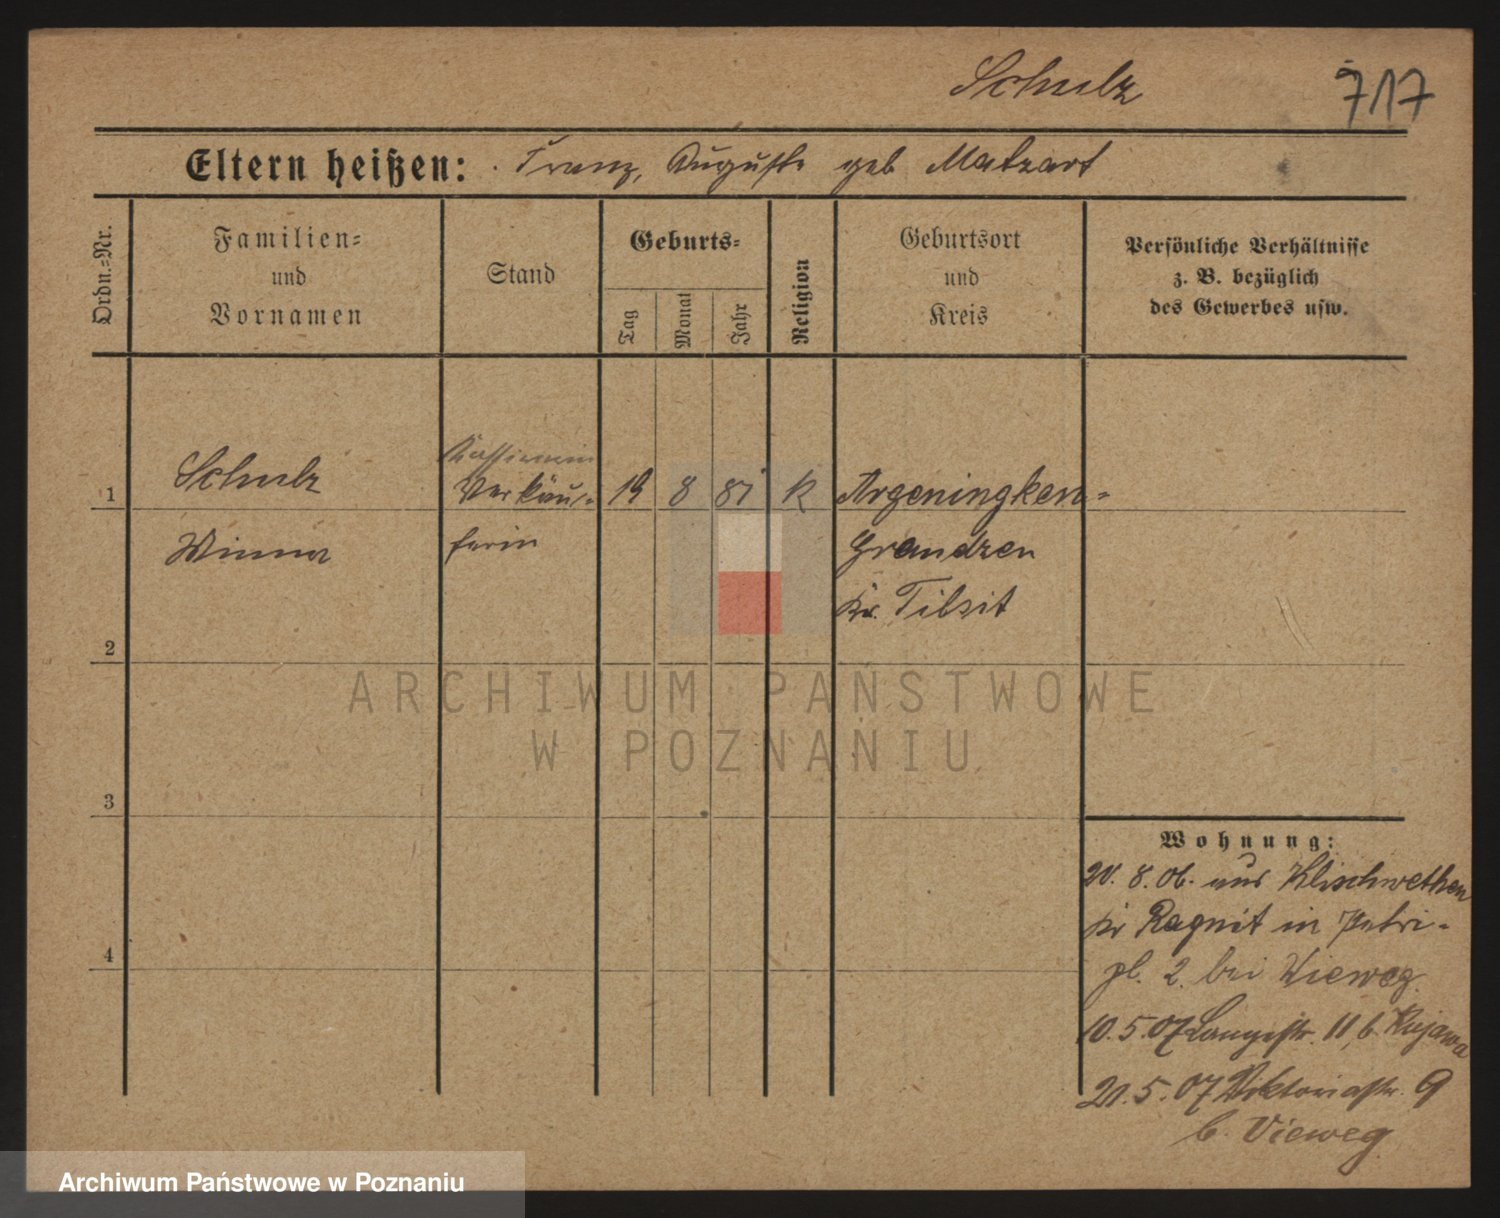 Schulz 717
Eltern heißen: Franz, Auguste geb Matzart
Ordn.-Nr.
Familien-
und
Vornamen
Stand
Geburts-
Tag
Monat
Jahr
Religion
Geburtsort
und
Kreis
Persönliche Verhältnisse
z. B. bezüglich
des Gewerbes usw.
Kassiererin
1 Schulz Verkäu- 19 8 81 k Argeningken-
Minna ferin Grandzen
Kr. Tilsit
2
3
4
Wohnung:
20. 8. 06. aus Klischwethen
Kr Ragnit in Petri-
pl. 2. bei Vieweg.
10. 5. 07 Langestr. 11, b. Kujawa
21. 5. 07 Viktoriastr. 9
b. Vieweg
ARCHIWUM PAŃSTWOWE
W POZNANIU
Archiwum Państwowe w Poznaniu